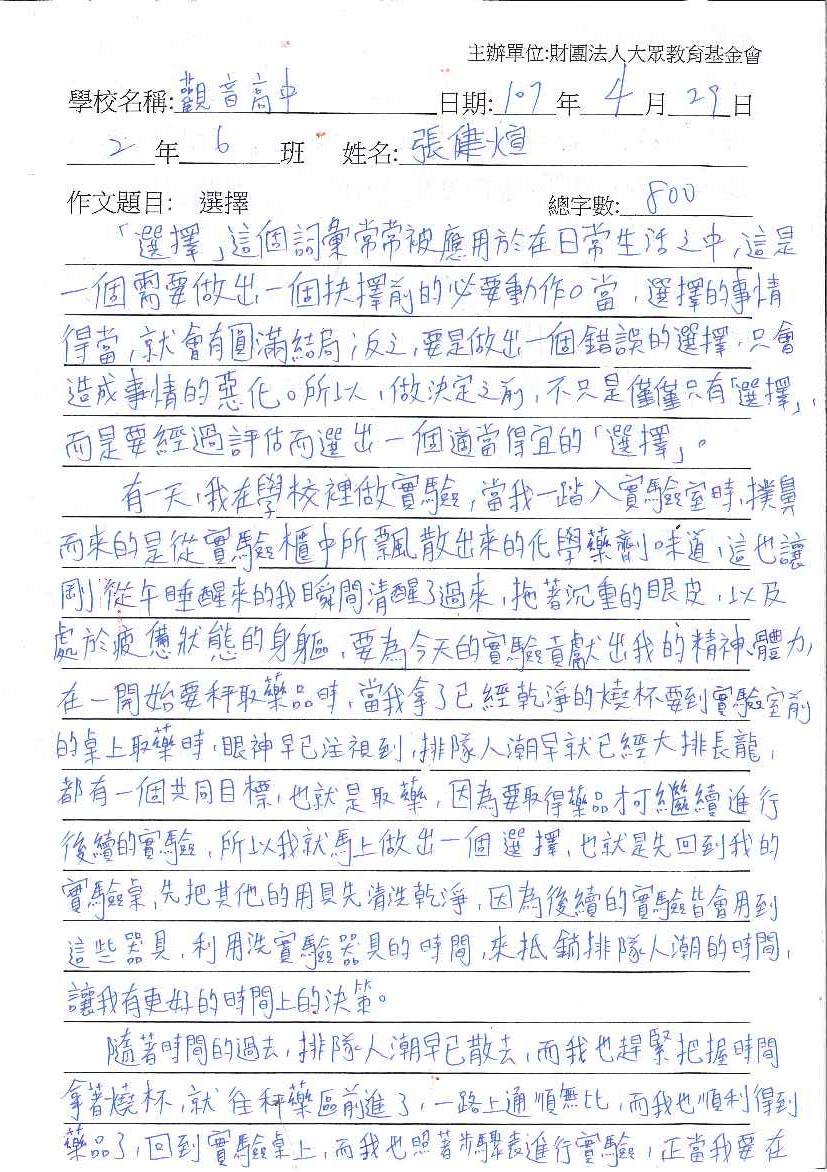 主辦單位:財團法人大眾教育基金會
學校名稱:觀音高中 日期:107年4月29日
2年6班 姓名:張健煊
作文題目: 選擇 總字數:800
「選擇」這個詞彙常常被應用於在日常生活之中,這是
一個需要做出一個抉擇前的必要動作。當,選擇的事情
得當,就會有圓滿結局;反之,要是做出一個錯誤的選擇,只會
造成事情的惡化。所以,做決定之前,不只是僅僅只有「選擇」,
而是要經過評估而選出一個適當得宜的「選擇」。
有一天,我在學校裡做實驗,當我一踏入實驗室時,撲鼻
而來的是從實驗櫃中所飄散出來的化學藥劑味道,這也讓
剛從午睡醒來的我瞬間清醒了過來,拖著沉重的眼皮,以及
處於疲憊狀態的身軀,要為今天的實驗貢獻出我的精神、體力,
在一開始要秤取藥品時,當我拿了已經乾淨的燒杯要到實驗室前
的桌上取藥時,眼神早已注視到,排隊人潮早就已經大排長龍,
都有一個共同目標,也就是取藥,因為要取得藥品才可繼續進行
後續的實驗,所以我就馬上做出一個選擇,也就是先回到我的
實驗桌,先把其他的用具先清洗乾淨,因為後續的實驗皆會用到
這些器具,利用洗實驗器具的時間,來抵銷排隊人潮的時間,
讓我有更好的時間上的決策。
隨著時間的過去,排隊人潮早已散去,而我也趕緊把握時間
拿著燒杯,就往秤藥區前進了,一路上通順無比,而我也順利得到
藥品了,回到實驗桌上,而我也照著步驟表進行實驗,正當我要在